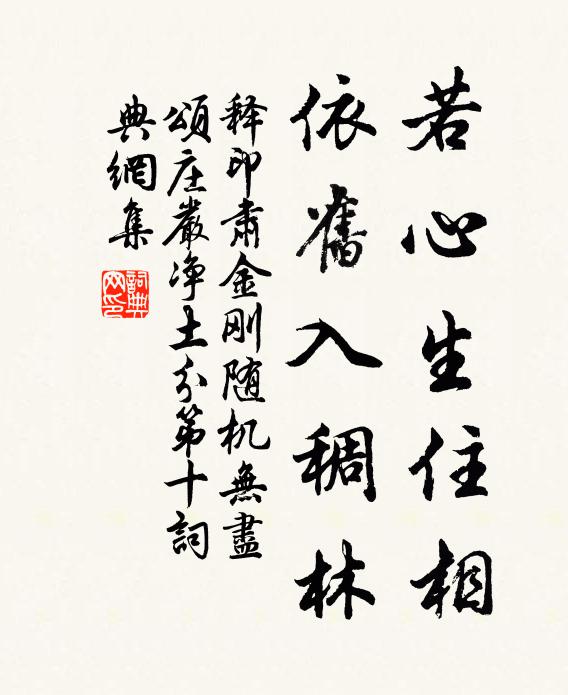 若心生住相
依舊入稠林
释印肃金刚随机無盡
頌庄嚴净土分第十詞
典網集
詞典网印